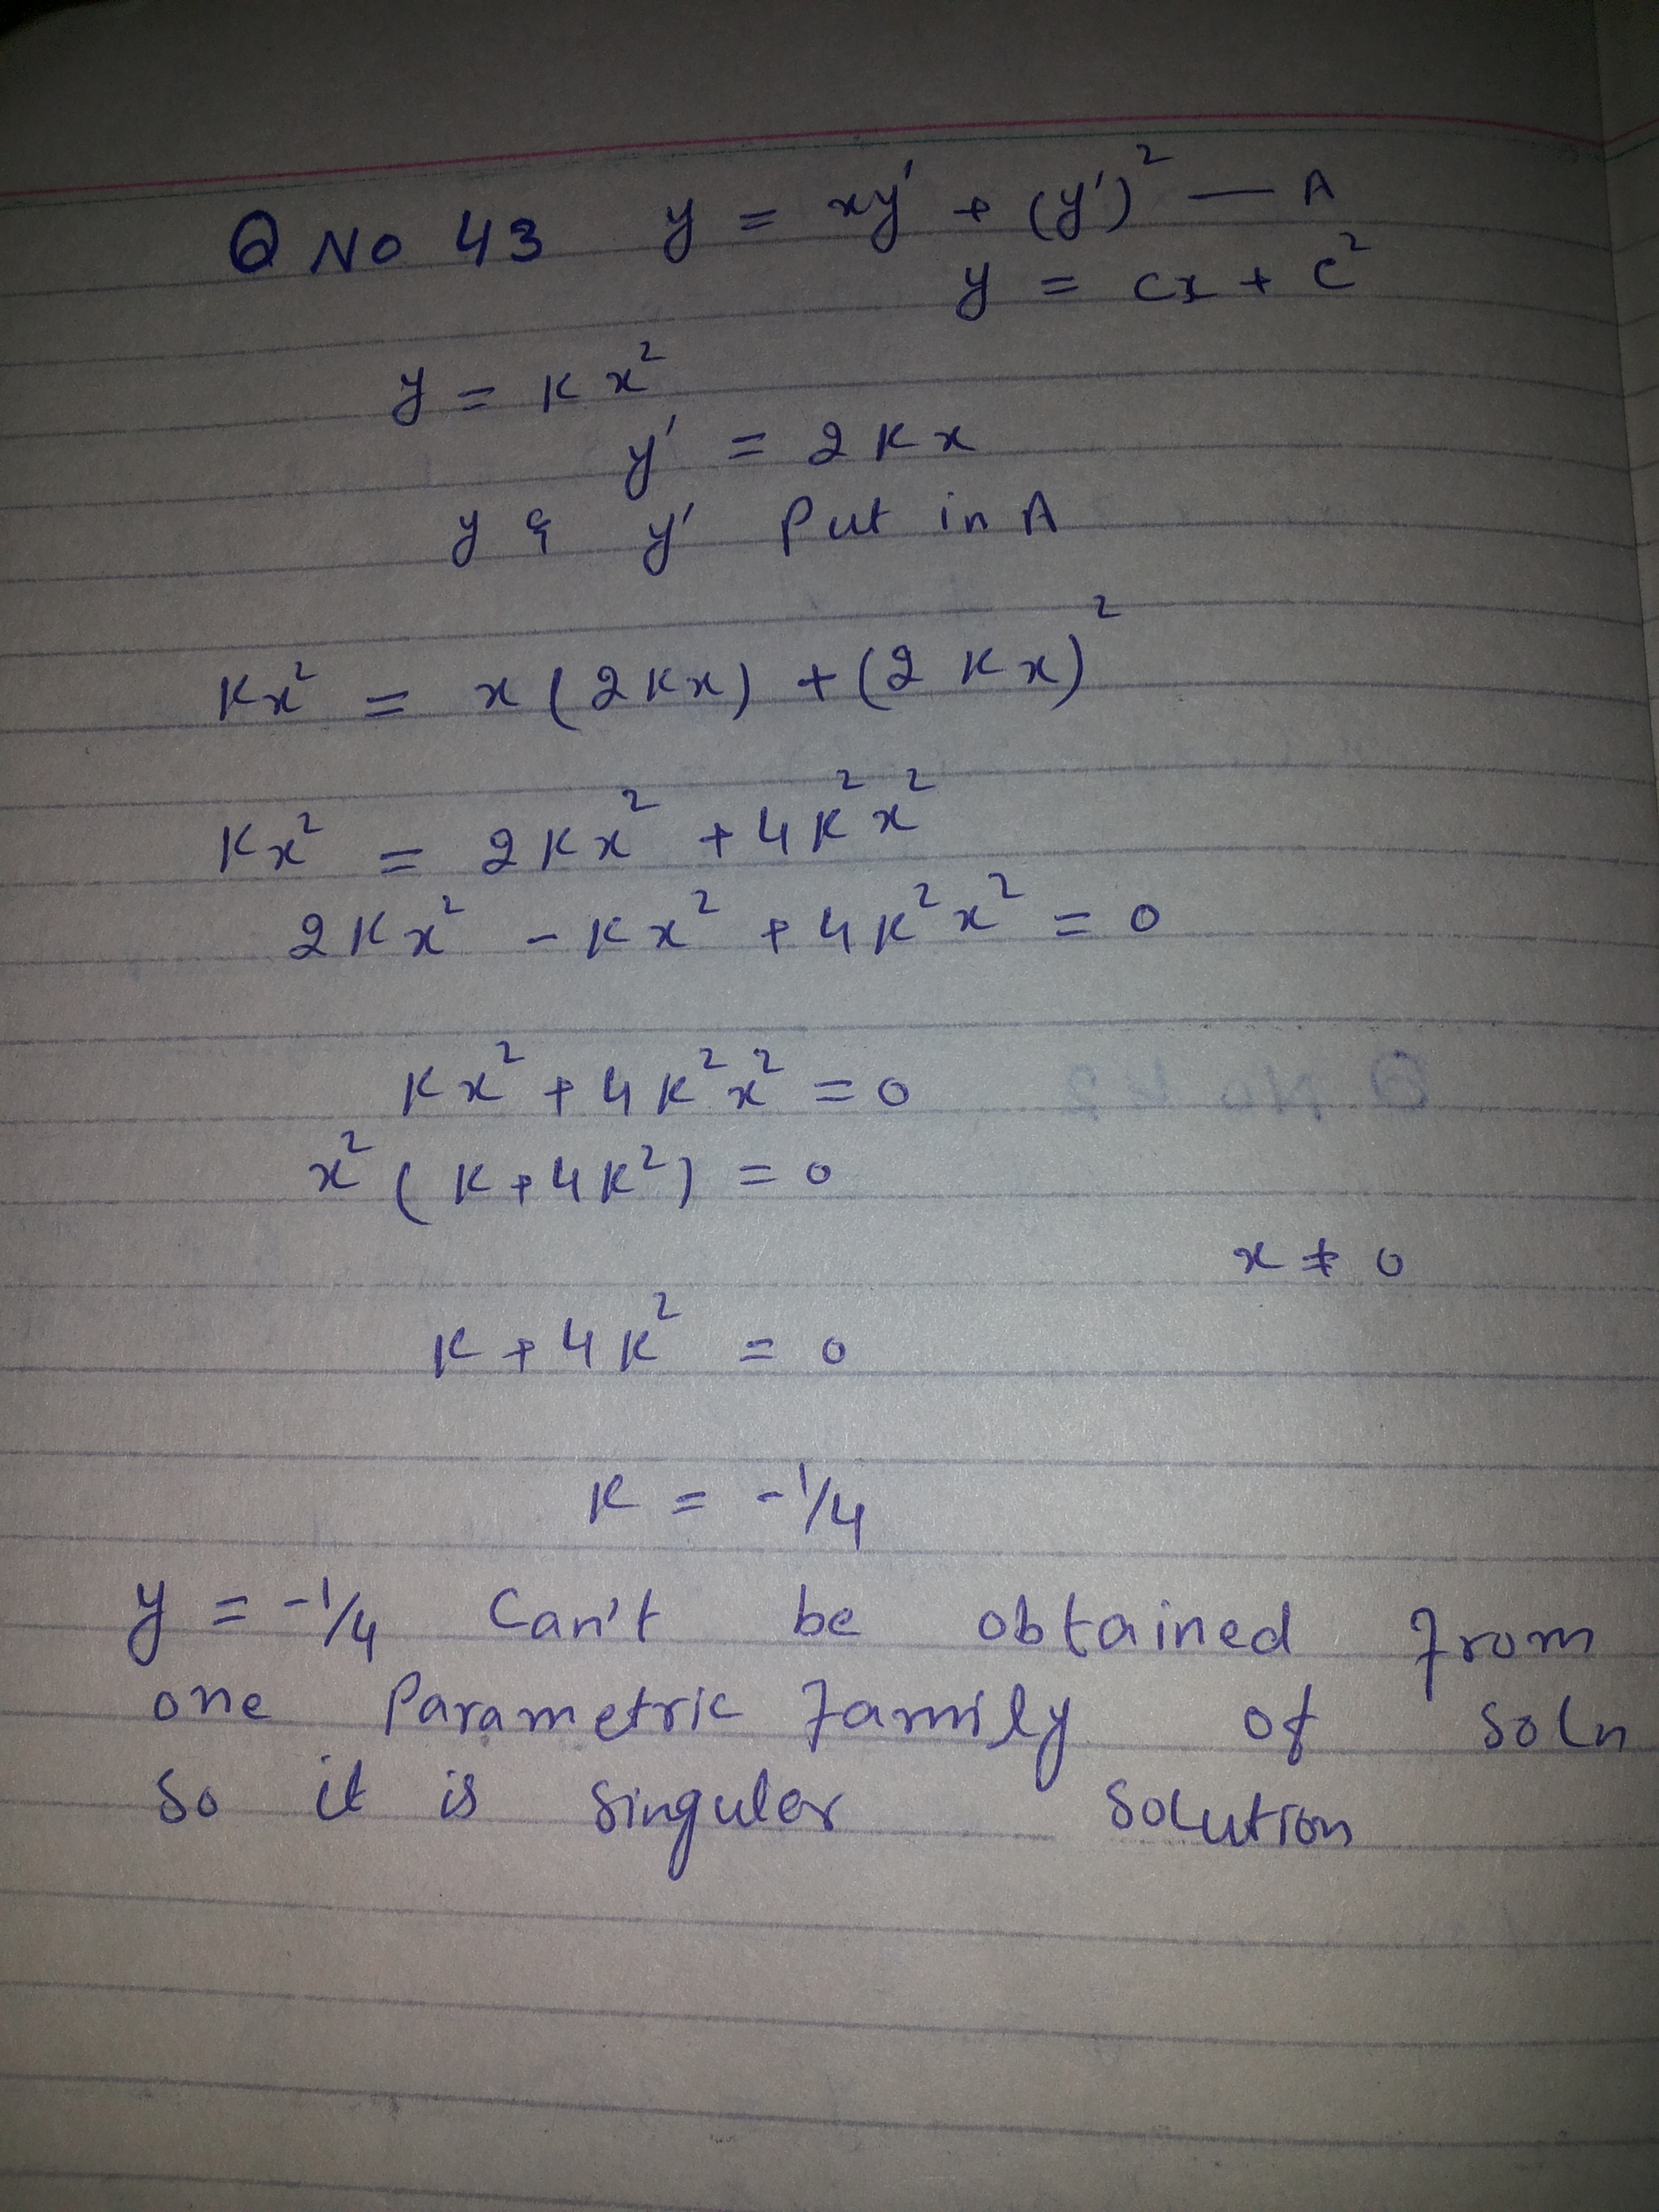 Q No 43 y = xy' + (y')² — A
y = cx + c²
y = Kx²
y' = 2Kx
y & y' Put in A
Kx² = x(2Kx) + (2Kx)²
Kx² = 2Kx² + 4K²x²
2Kx² - Kx² + 4K²x² = 0
Kx² + 4K²x² = 0
x²(K + 4K²) = 0
x ≠ 0
K + 4K² = 0
K = -1/4
y = -1/4 Can't be obtained from
one Parametric family of soln
So it is Singular Solution